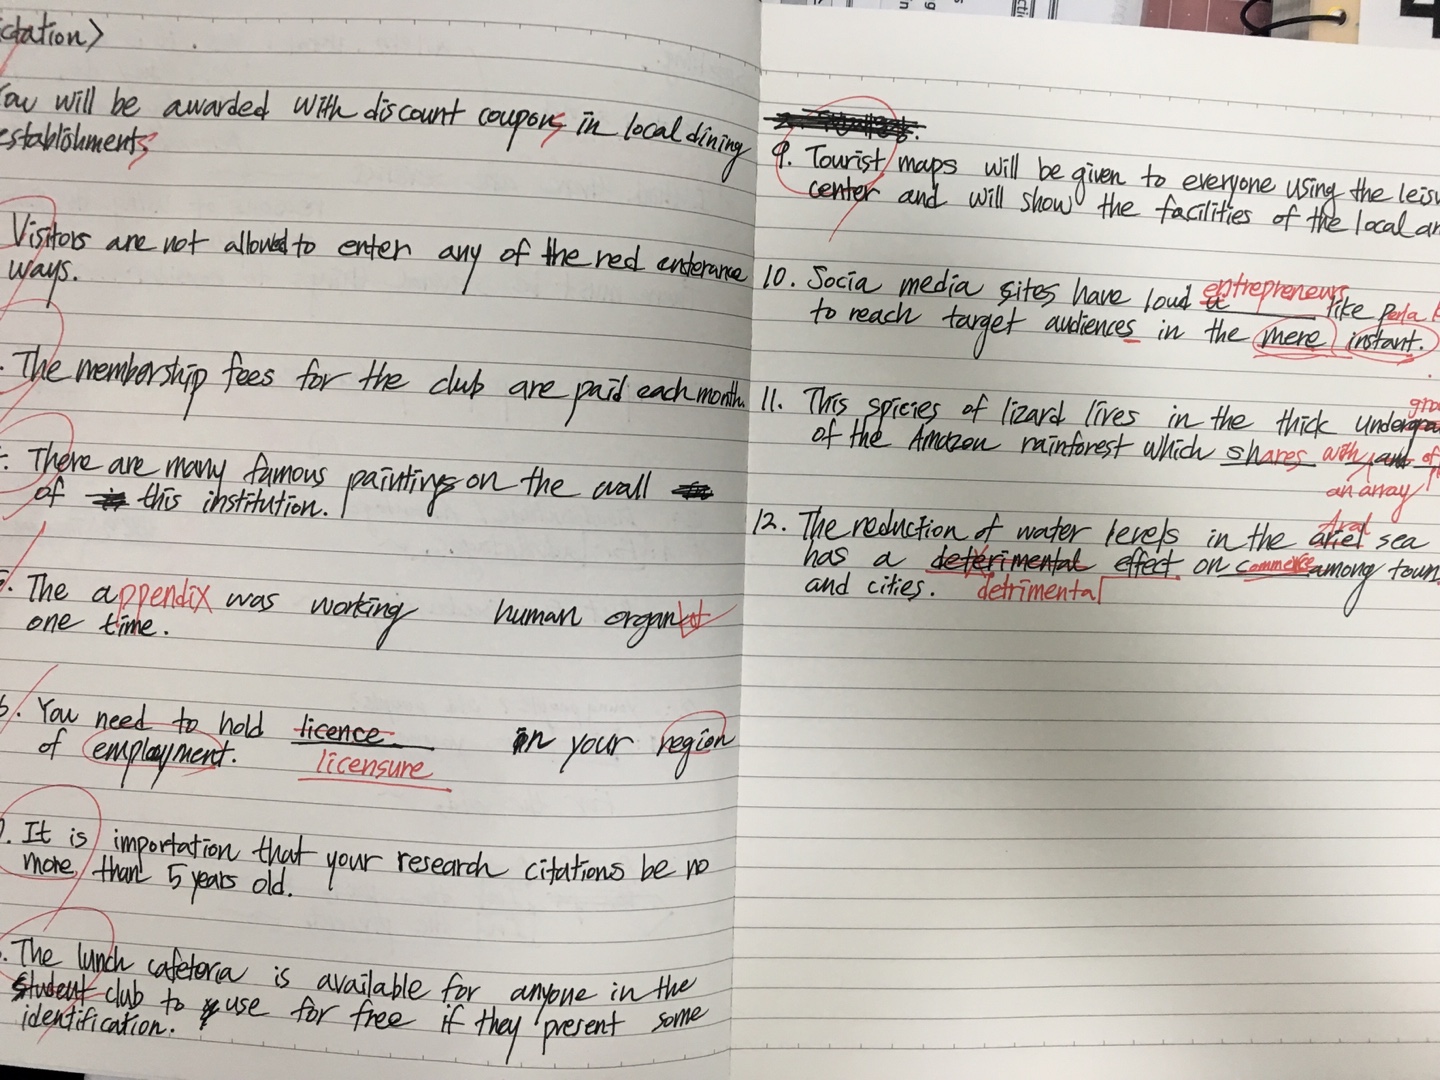 ctation>
You will be awarded with discount coupons in local dining
establishments
Visitors are not allowed to enter any of the red enterance
ways.
The membership fees for the club are paid each month.
There are many famous paintings on the wall
of this institution.
The appendix was working human organ
one time.
6. You need to hold licence in your region
of employment. licensure
7. It is importation that your research citations be no
more than 5 years old.
The lunch cafeteria is available for anyone in the
student club to use for free if they present some
identification.
9. Tourist maps will be given to everyone using the leisu
center and will show the facilities of the local ar
entrepreneurs
10. Socia media sites have loud like Perla
to reach target audiences in the mere instant.
gro
11. This spicies of lizard lives in the thick undergra
of the Amazon rainforest which shares with and of
an array
Aral
12. The reduction of water levels in the ariel sea
has a deterimental effect on commerce among town
and cities. detrimental